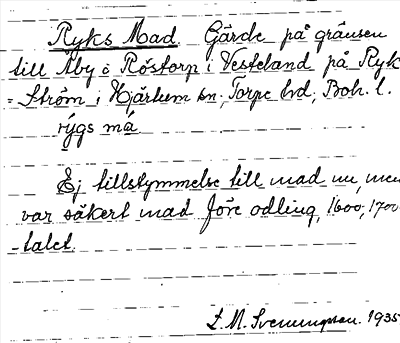 Ryks Mad. Gärde på gränsen
till Åby o Röstorp i Vesteland på Ryk
= Ström i Hjärtum sn, Torpe hd, Boh. l.
rýgs má
Ej tillstymmelse till mad nu, men
var säkert mad före odling, 1600, 1700
-talet.
L. M. Svenungsson. 1935